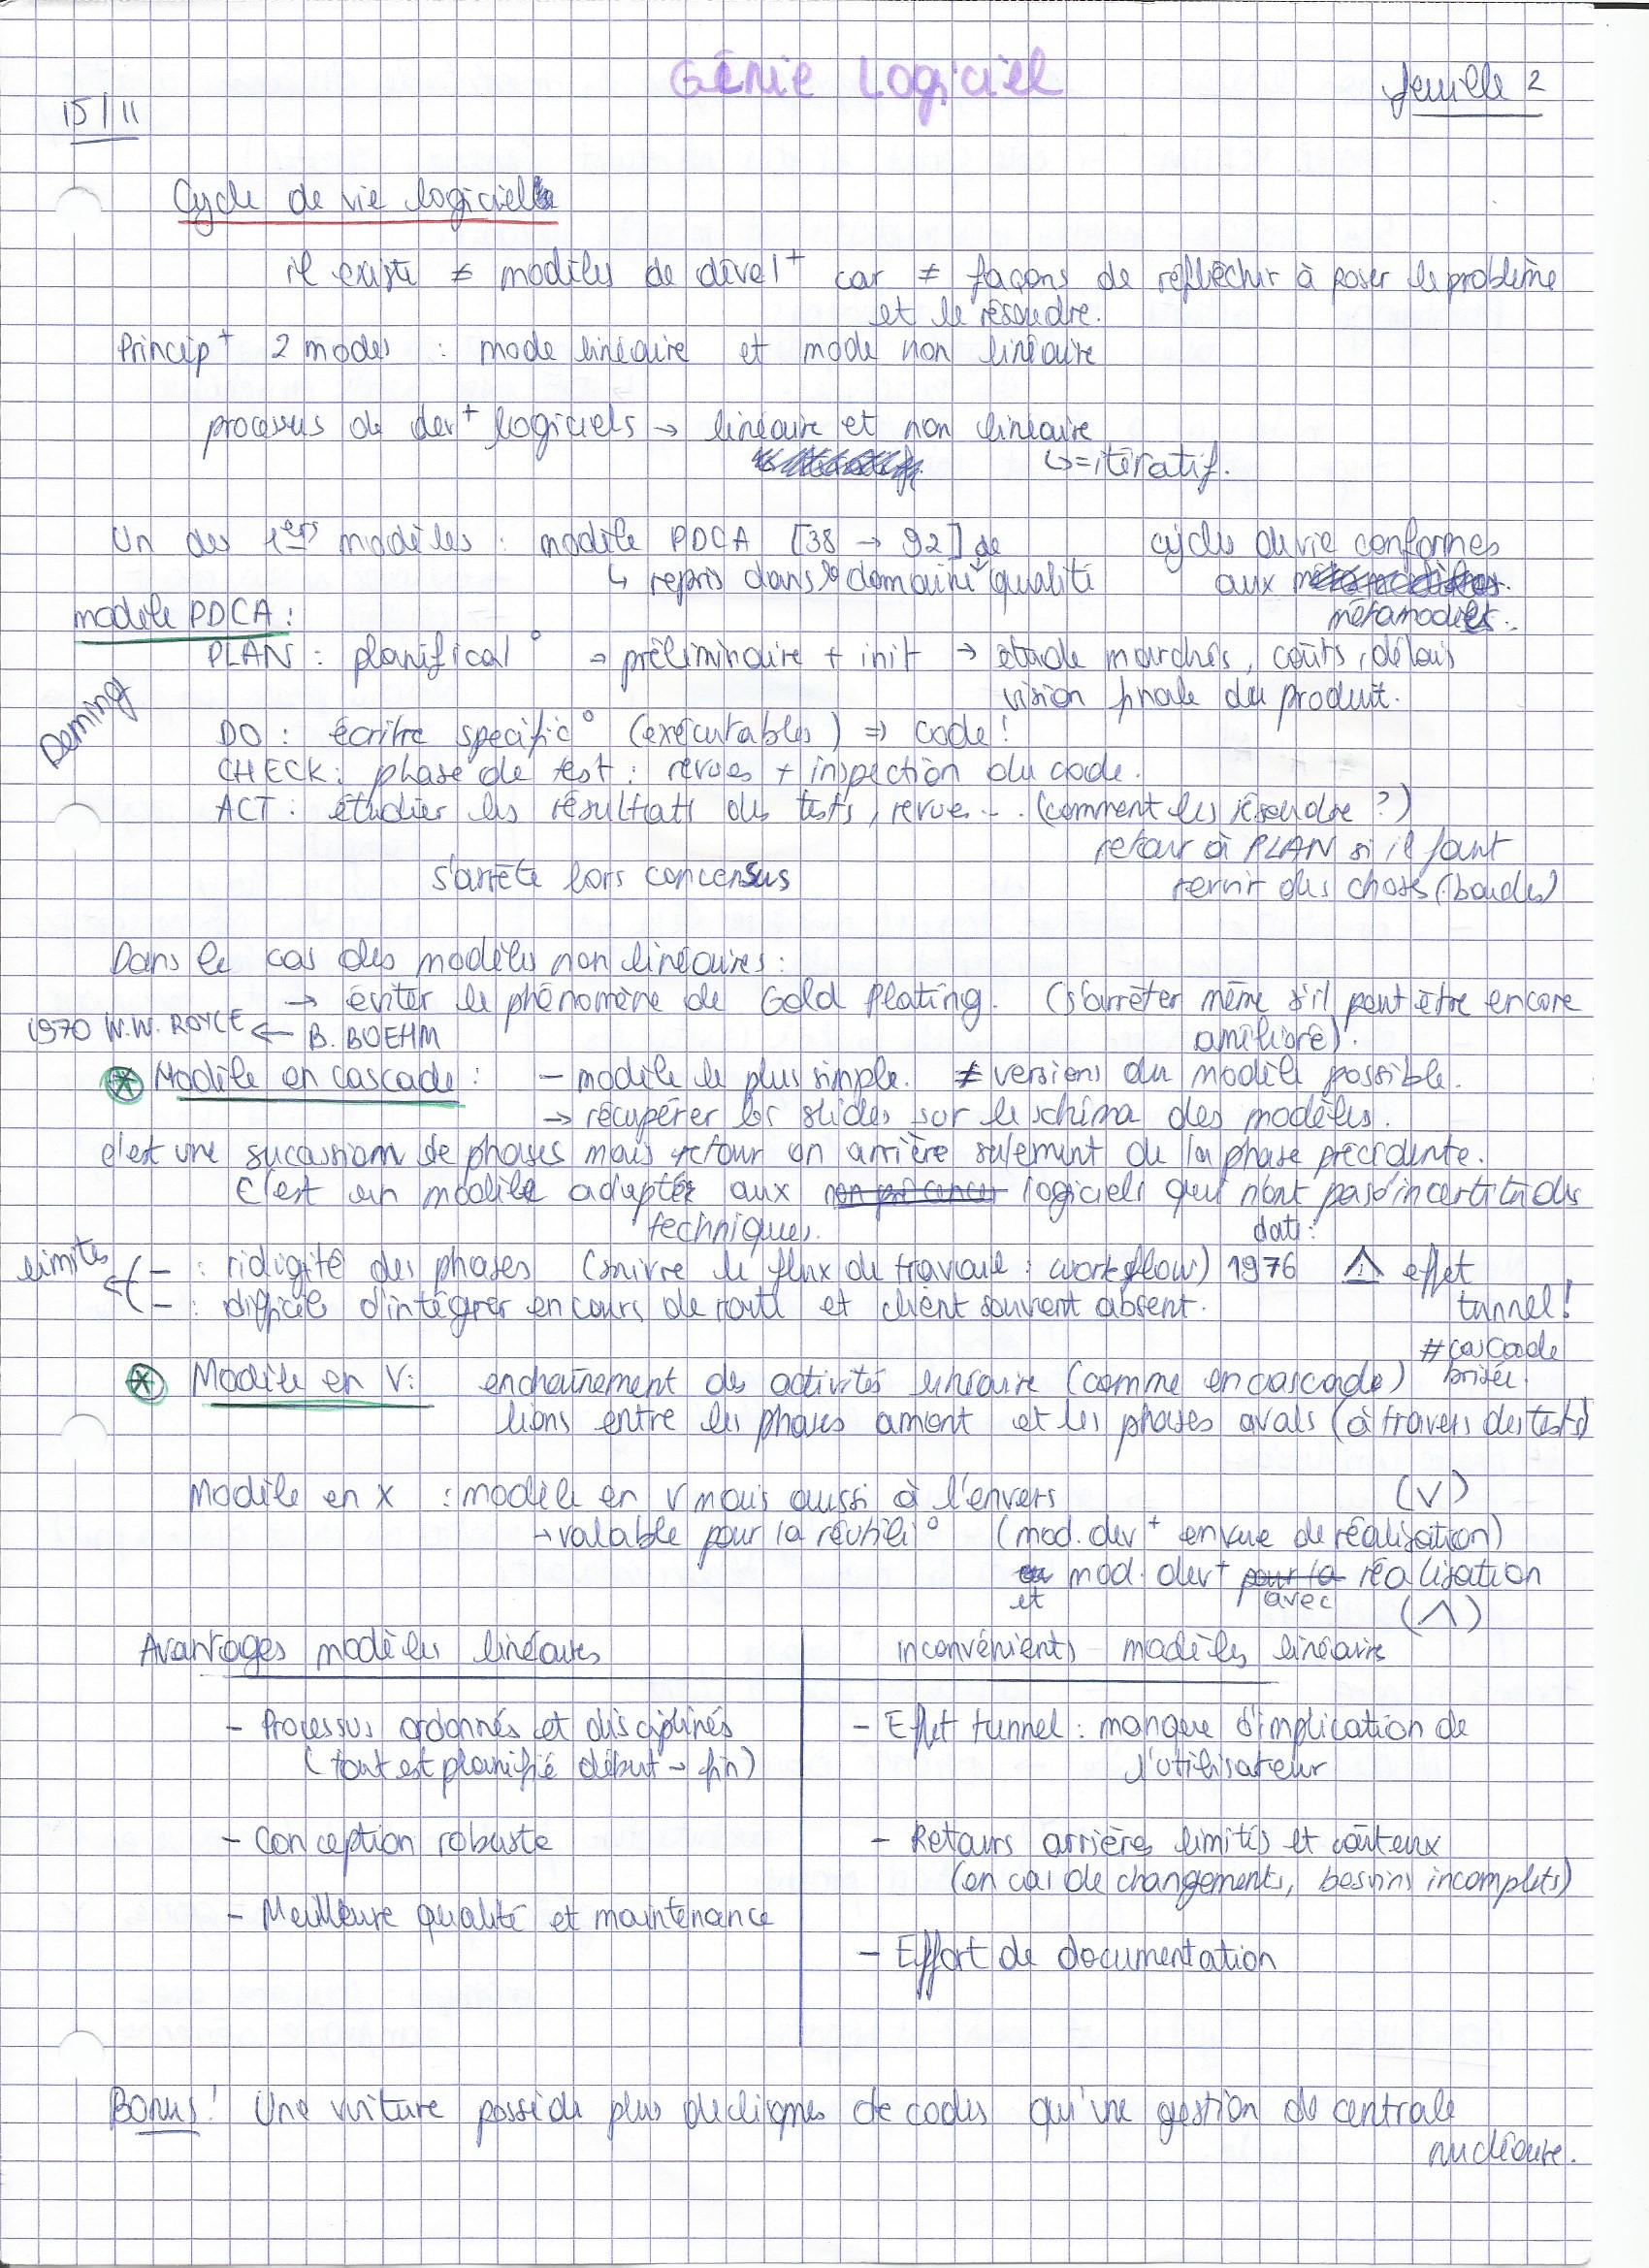 Génie Logiciel
feuille 2
15/11
Cycle de vie logiciel
il existe ≠ modèles de dével+ car ≠ façons de réfléchir à poser le problème
et le résoudre.
Princip+ 2 modes : mode linéaire et mode non linéaire
processus de dev+ logiciels → linéaire et non linéaire
↳ = itératif.
Un des 1ers modèles : modèle PDCA [38 → 92] de
↳ repris dans le domaine qualité
cycles de vie conformes
aux
métamodèles.
modèle PDCA :
PLAN : planificat° → préliminaire + init → étude marchés, coûts, délais
vision finale du produit.
Deming
DO : écrire specific° (exécutables) => code !
CHECK : phase de test : revues + inspection du code.
ACT : étudier les résultats des tests, revue... (comment les résoudre ?)
retour à PLAN si il faut
s'arrête lors concensus
revoir des choses (boucles)
Dans le cas des modèles non linéaires :
→ éviter le phénomène de Gold Plating. (s'arrêter même s'il peut être encore
amélioré).
1970 W.W. ROYCE ← B. BOEHM
Modèle en cascade : - modèle le plus simple. ≠ versions du modèle possible.
→ récupérer les slides sur le schéma des modèles.
c'est une sucession de phases mais retour en arrière seulement de la phase précédente.
C'est un modèle adapté aux logiciels qui n'ont pas d'incertitudes
techniques.
date :
limites ← - : ridigité des phases (suivre le flux de travail : workflow) 1976 ⚠ effet
tunnel !
- : difficile d'intégrer en cours de route et client souvent absent.
#cascade
brisée.
Modèle en V : enchaînement des activités linéaire (comme en cascade)
liens entre les phases amont et les phases avals (à travers des tests)
Modèle en X : modèle en V mais aussi à l'envers (V)
→ valable pour la réutili° (mod. dev+ en vue de réalisation)
et mod. dev+ avec réalisation
(Λ)
Avantages modèles linéaires
inconvénients modèles linéaire
- Processus ordonnés et disciplinés
(tout est planifié début → fin)
- Effet tunnel : manque d'implication de
l'utilisateur
- Conception robuste
- Retours arrières limités et coûteux
(en cas de changements, besoins incomplets)
- Meilleure qualité et maintenance
- Effort de documentation
Bonus ! Une voiture possède plus de lignes de codes qu'une gestion de centrale
nucléaire.